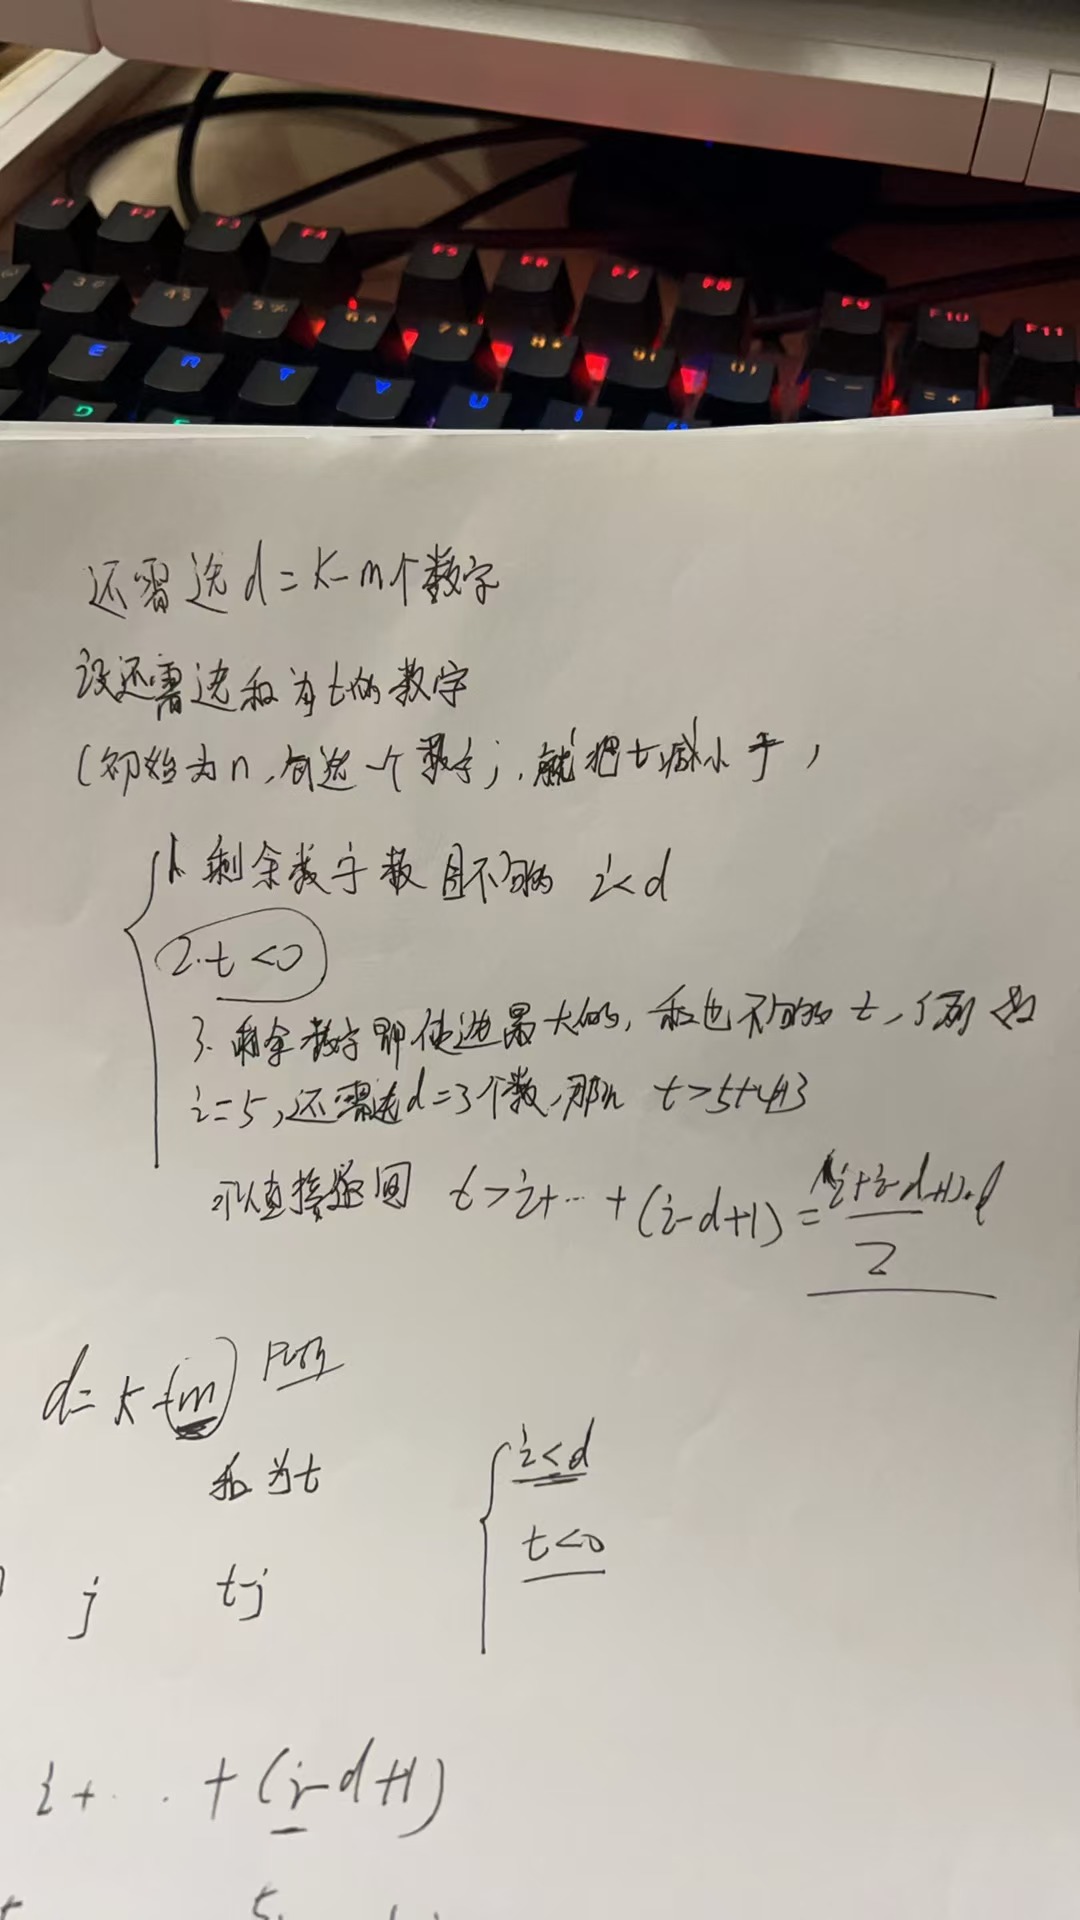 F1 F2 F3 F4 F5 F6 F7 F8 F9 F10 F11
3 4 5% 6^ 7& 8* 9( 0) - =+
W E R T Y U I
D
还需选d=k-m个数字
设还需选和为t的数字
(初始为n,每选一个数字j,就把t减小j)
1. 剩余数字数目不够 i<d
2. t<0
3. 剩余数字即使选最大的,和也不够t,例如
i=5,还需选d=3个数,那么 t>5+4+3
可以直接返回 t>i+…+(i-d+1)=(i+i-d+1)·d/2
d=k-m path
和为t
i<d
t<0
j t-j
i+...+(i-d+1)
5